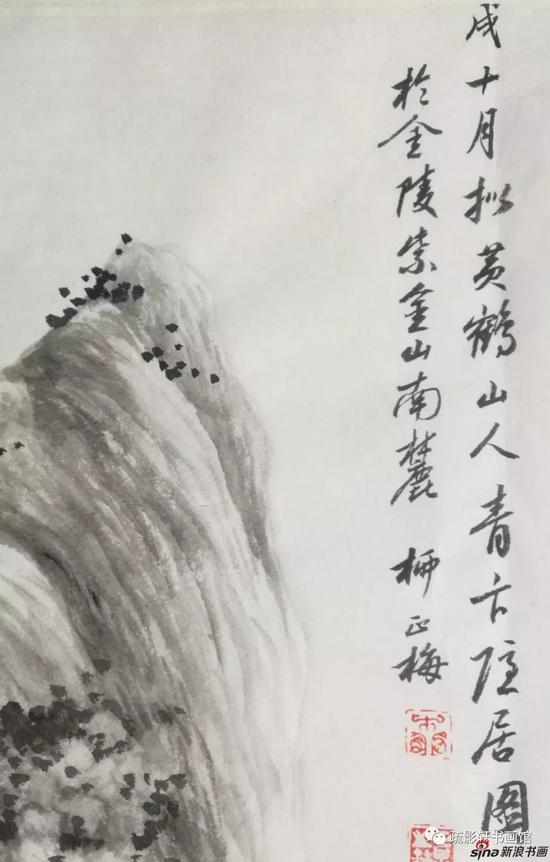 戌十月拟黄鹤山人青卞隐居图
於金陵紫金山南麓 柳正梅
疏影轩书画馆
sina新浪书画